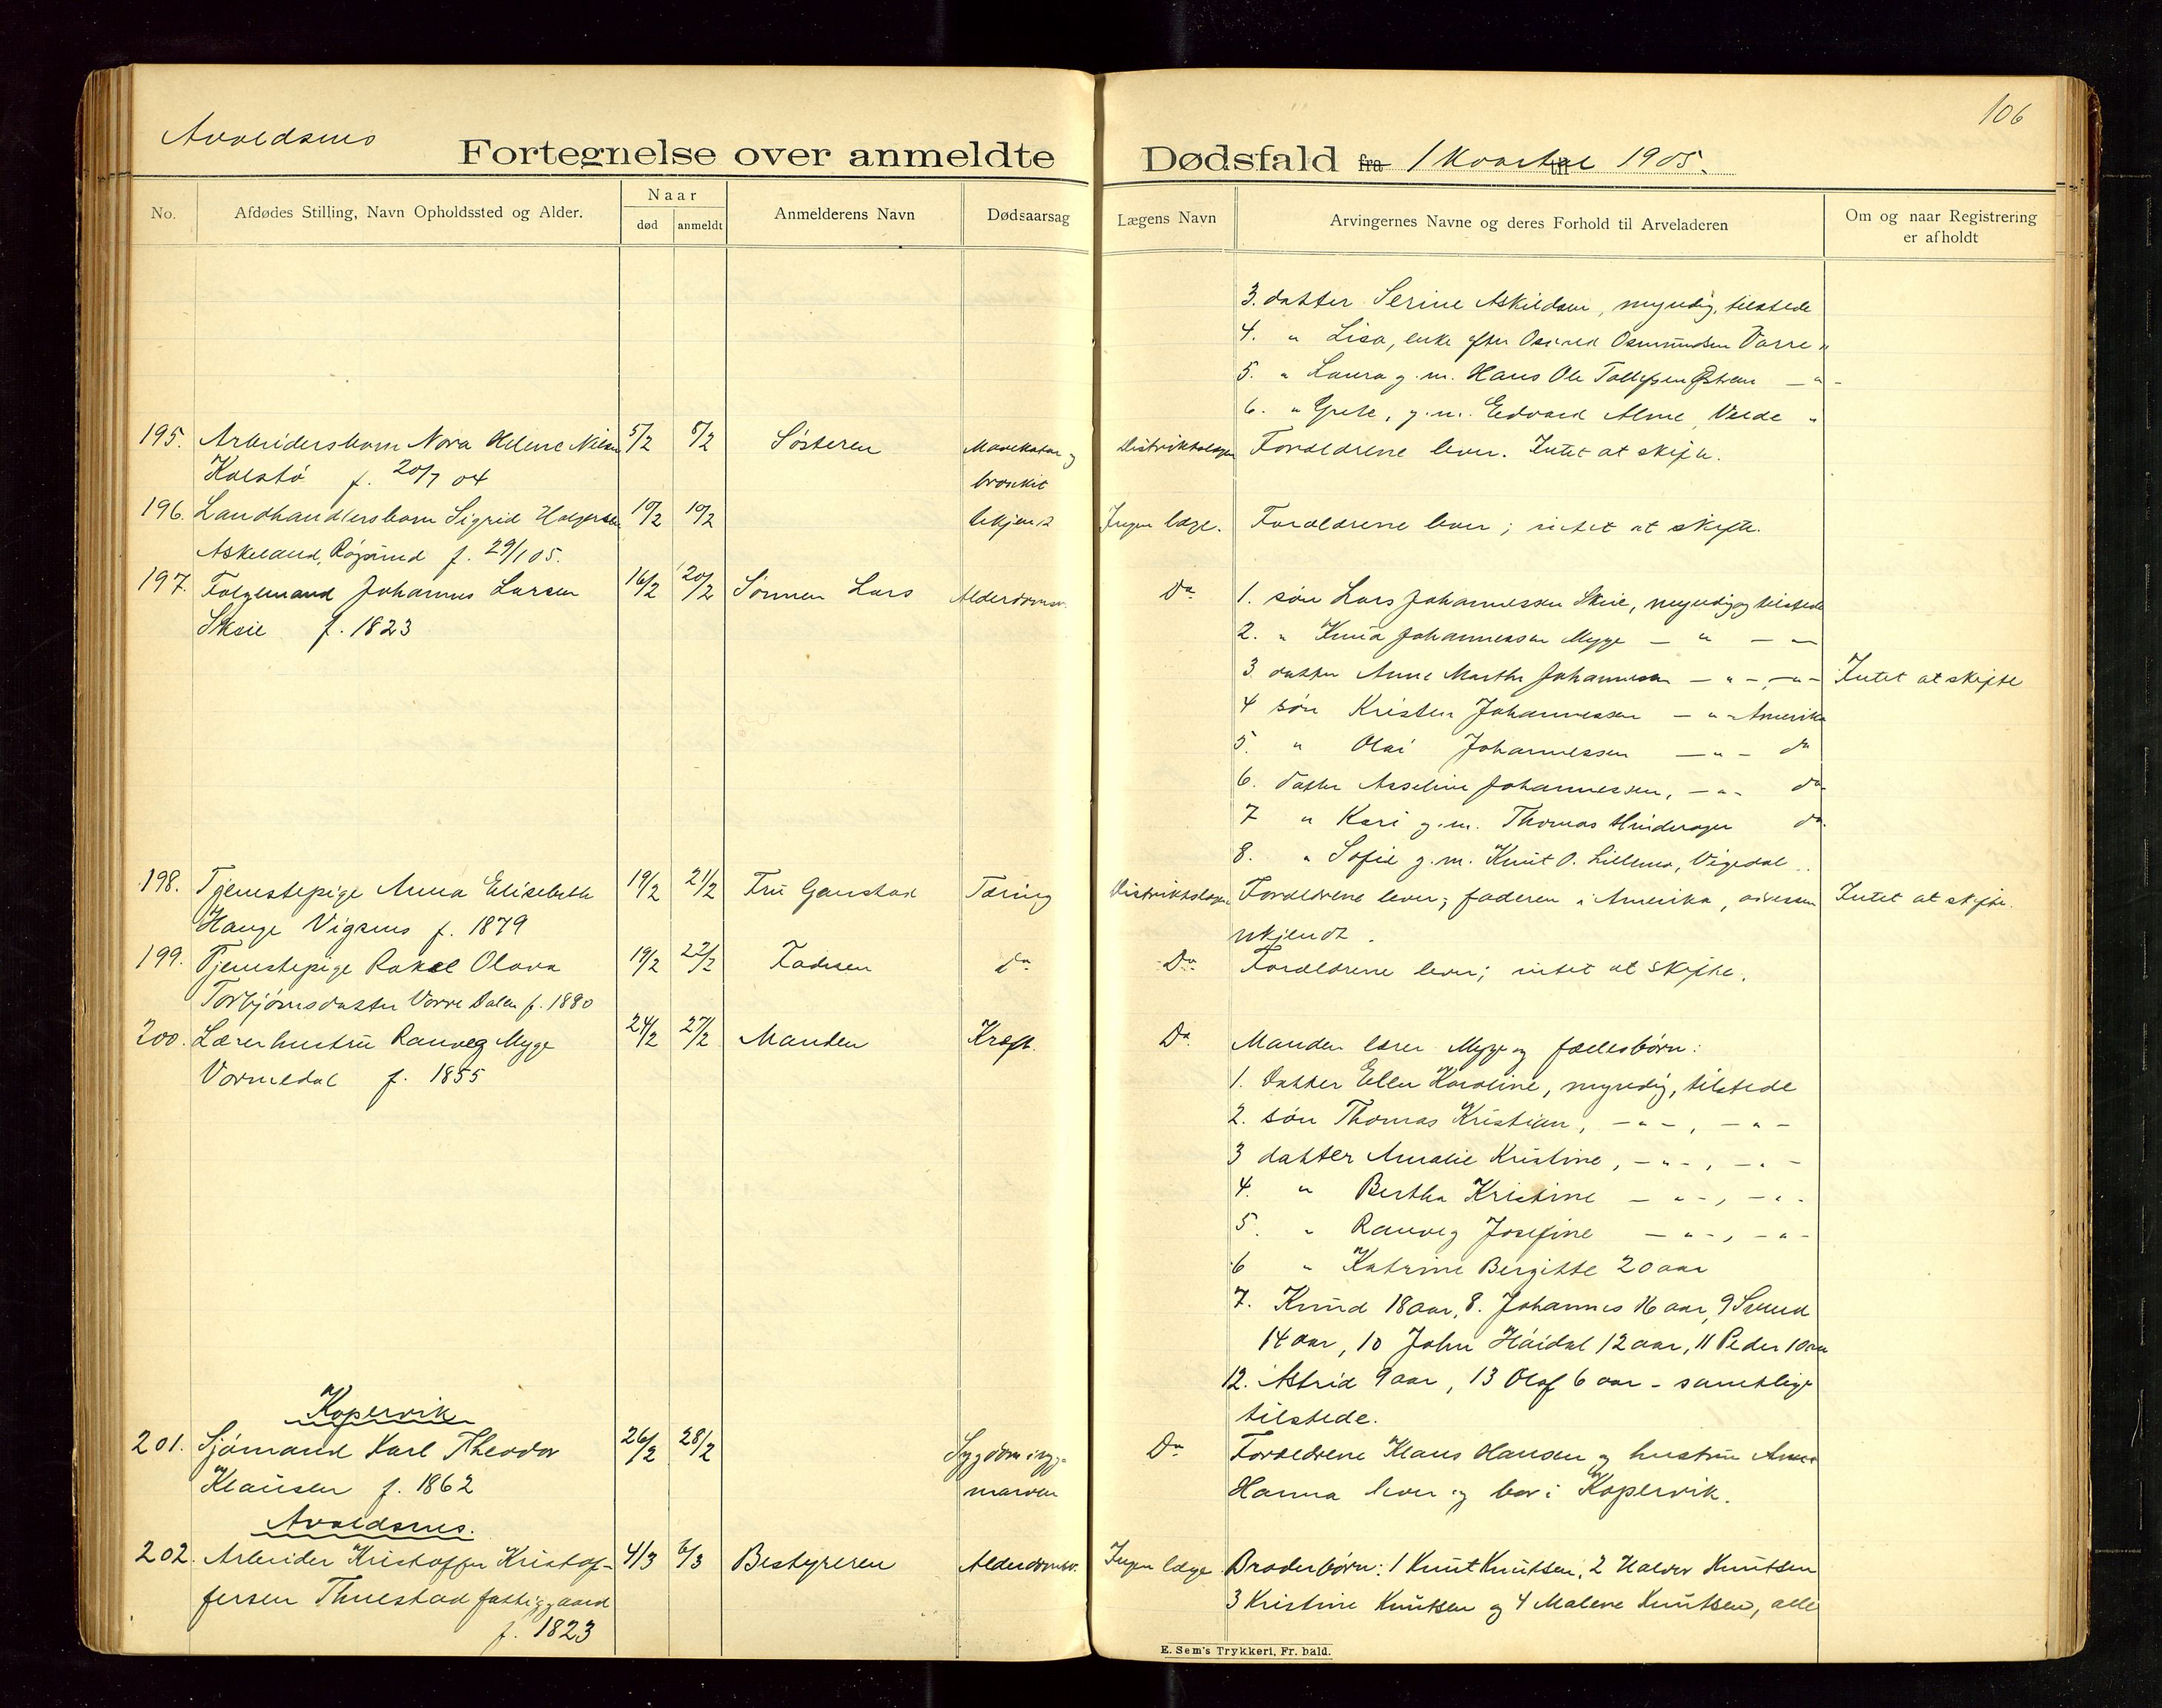 106
Avaldsnes
Fortegnelse over anmeldte Dødsfald fra 1 Kvartal til 1905.
No.
Afdødes Stilling, Navn Opholdssted og Alder.
Naar
død
anmeldt
Anmelderens Navn
Dødsaarsag
Lægens Navn
Arvingernes Navne og deres Forhold til Arveladeren
Om og naar Registrering
er afholdt
3. datter Serine Askildsen, myndig, tilstede
4. " Lisa, enke efter Osmund Osmundsen Vorre "
5. " Laura g. m. Hans Ole Tollefsen Østrem — " -
6. " Grete, g. m. Edvard Alme, Velde "
195. Arbeidersbarn Nora Helene Nilsen 5/2 8/2 Søsteren Mavekatar og Distriktslægen Forældrene lever. Intet at skifte.
Kolstø f. 20/7 04 bronkit
196. Landhandlersbarn Sigrid Holgersen 10/2 10/2 Ukjendt Ingen læge. Forældrene lever; intet at skifte.
Askeland, Røysund f. 29/1 05.
197. Folgemand Johannes Larsen 16/2 20/2 Sønnen Lars Alderdomsv. Do 1. søn Lars Johannessen Skeie, myndig og tilstede
Skeie f. 1823
2. " Knud Johannessen Mygge — " — —
3 datter Anne Martha Johannesen — " — , — " — Intet at skifte
4 søn Kristen Johannessen — " — Amerika
5. " Olai Johannessen — " — do
6. datter Asseline Johannessen, — " - do
7 " Kari g. m. Thomas Hinderager do.
8. " Sofie g. m. Knut O. Lillenes, Vigedal
198. Tjenestepige Anna Elisabeth 19/2 21/2 Fru Ganstad Tæring Distriktslægen Forældrene lever; faderen i Amerika, adressen Intet at skifte.
Hauge Vigsnes f. 1879 ukjendt.
199. Tjenestepige Rakel Olava 19/2 22/2 Faderen do Do Forældrene lever; intet at skifte.
Torbjørnsdatter Vorre Dalen f. 1880
200. Lærerhustru Ranveg Mygge 24/2 27/2 Manden Kræft. Do Manden lærer Mygge og fællesbørn:
Vormedal f. 1855 1. Datter Ellen Karoline, myndig, tilstede
2. søn Thomas Kristian, - " - , - " -
3 datter Amalie Kristine, - " - , - " -
4. " Bertha Kristine — " - , - " -
5. " Ranveg Josefine — " - , - " -
6 " Katrine Bergitte 20 aar
7. Knud 18 aar, 8. Johannes 16 aar, 9 Svend
14 aar, 10 John Haidal 12 aar, 11 Peder 10 aar
12. Astrid 9 aar, 13 Olaf 6 aar - samtlige
tilstede.
Kopervik
201. Sjømand Karl Theodor 26/2 28/2 Sygdom i ryg- Do Forældrene Klaus Hansen og hustru Anna
Klausen f. 1862 marven Hanna lever og bor i Kopervik.
Avaldsnes.
202. Arbeider Kristoffer Kristof- 4/3 6/3 Bestyreren Alderdomsv. Ingen læge. Broderbørn: 1 Knut Knutsen, 2 Haldor Knutsen
fersen Thuestad fattiggaard 3 Kristine Knutsen og 4 Malene Knutsen, alle
f. 1823
E. Sem's Trykkeri, Fr. hald.